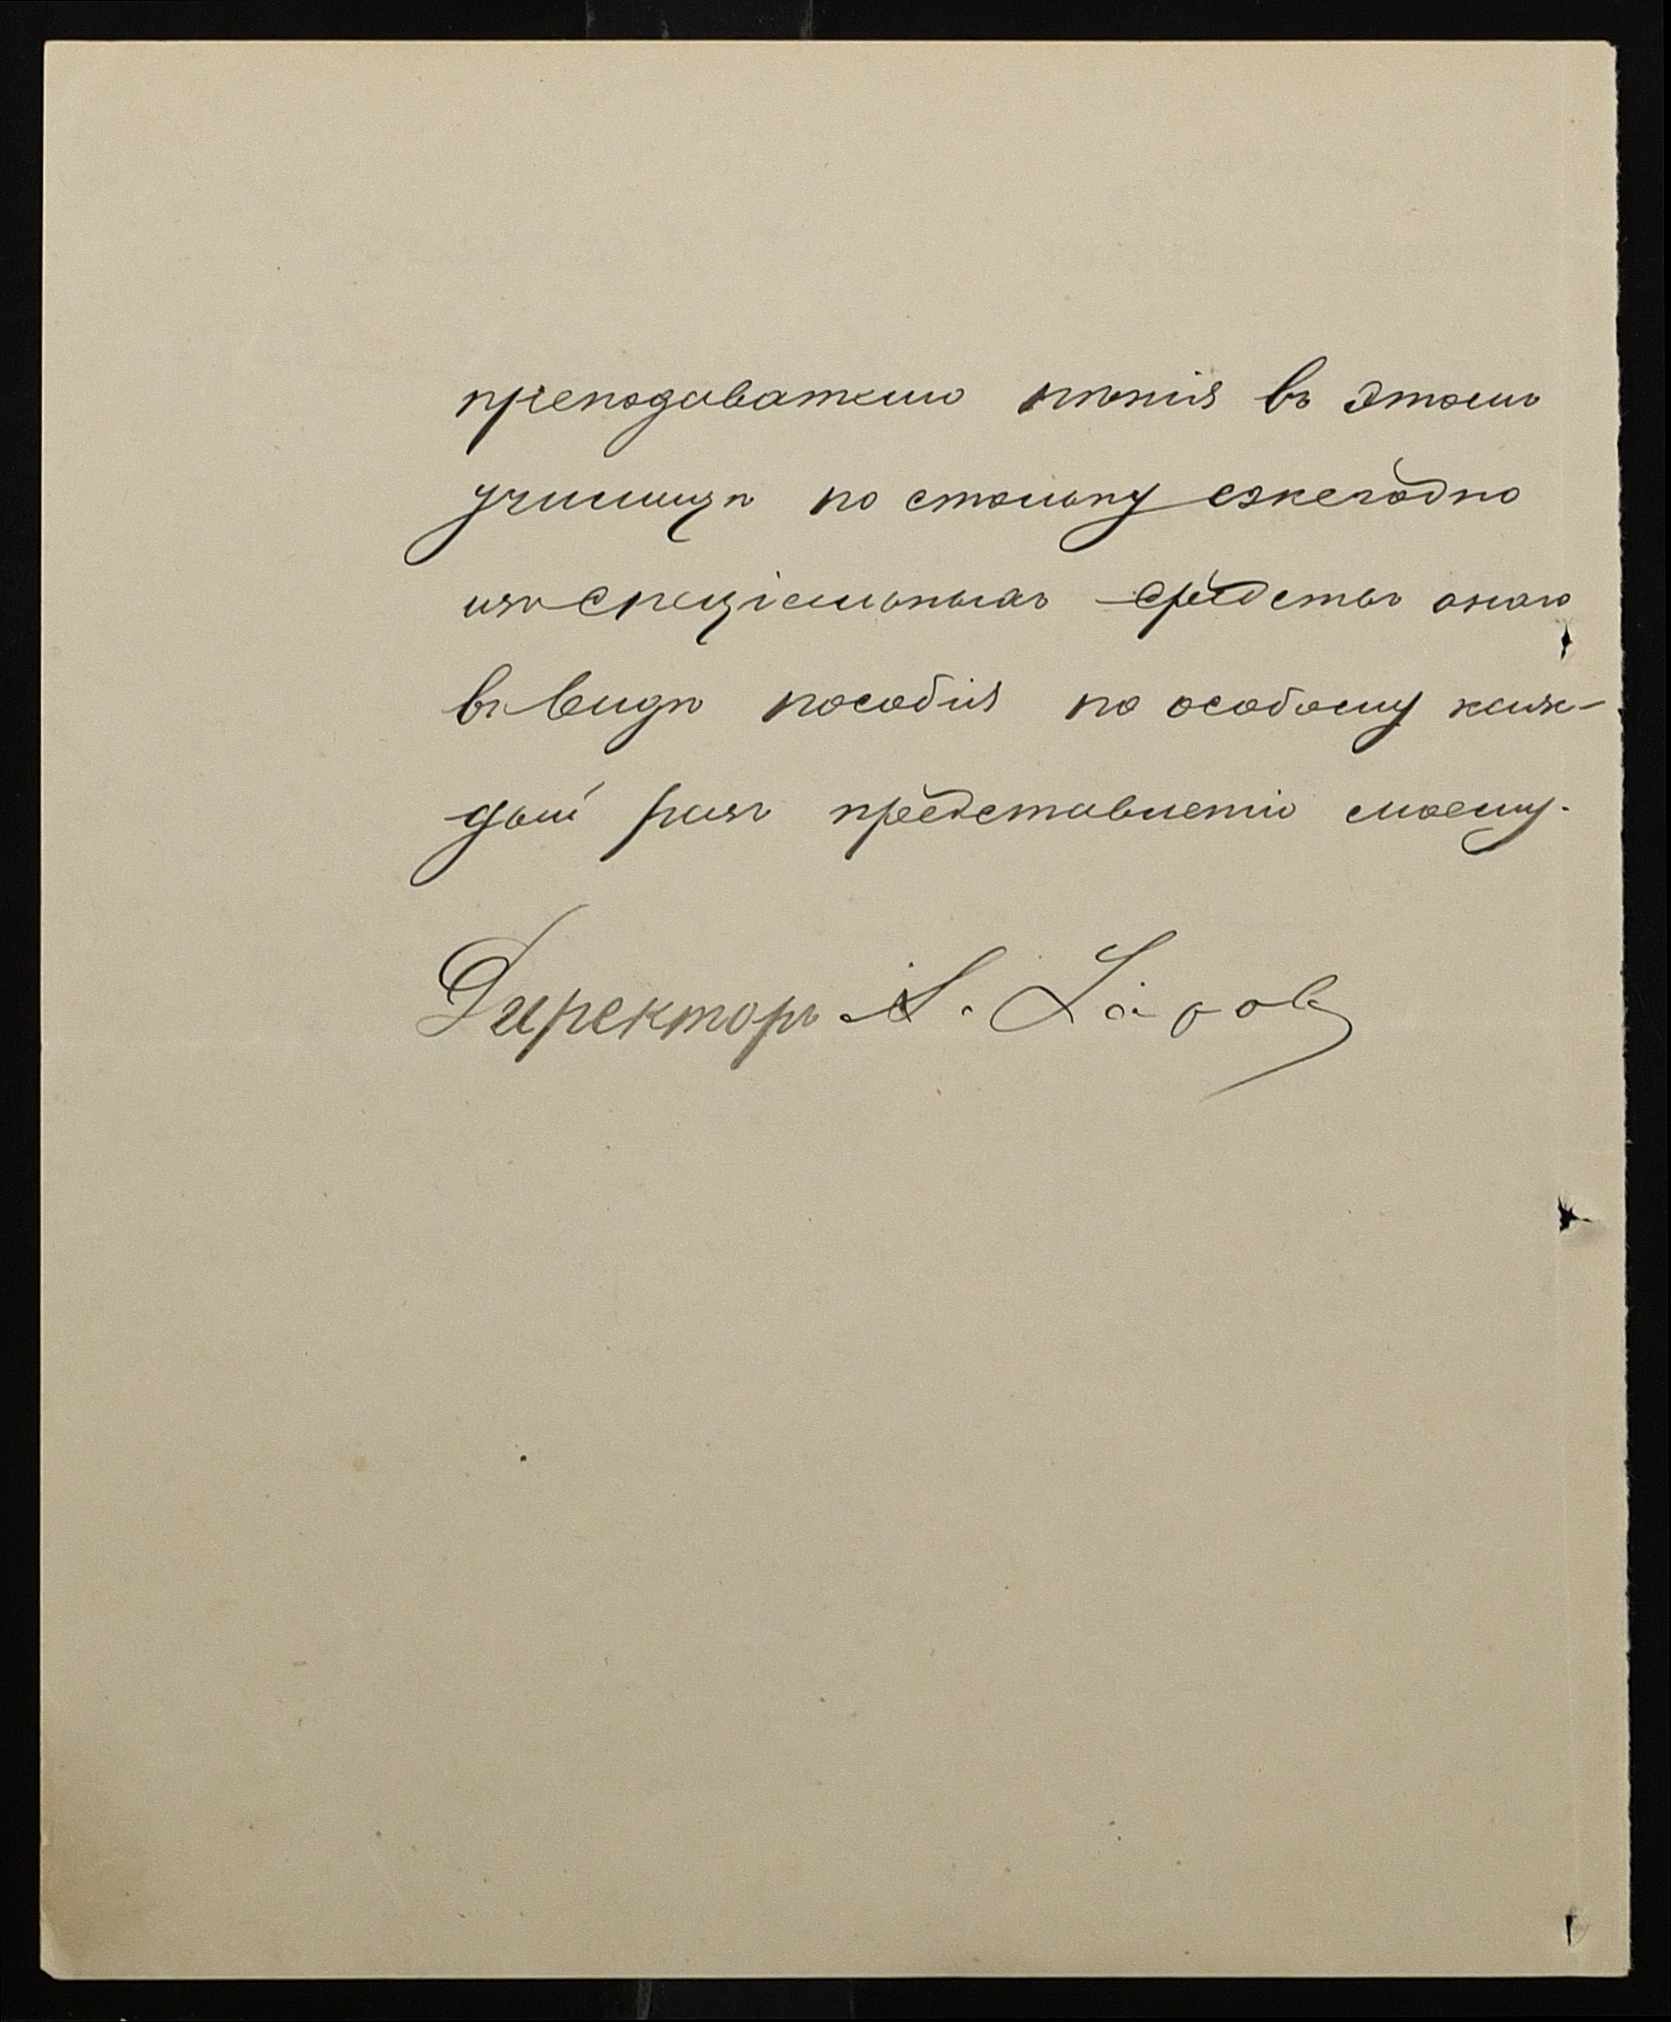 преподавателю пѣнія въ этомъ
училищѣ по стольку ежегодно
изъ спеціальныхъ средствъ онаго
въ видѣ пособія по особому каж-
дый разъ представленію моему.
Директоръ